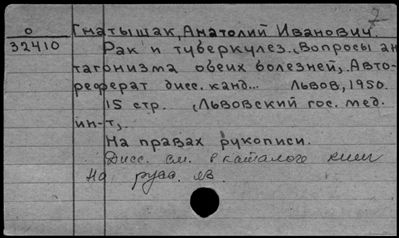 7
О Гнатышак, Анатолий Иванович.
32410 Рак и туберкулез. (Вопросы ан
тагонизма обеих болезней). Авто-
реферат дисс. канд... Львов, 1950.
15 стр. (Львовский гос. мед.
ин-т).
На правах рукописи.
Дисс. см. в каталоге книг
На русс. яз.